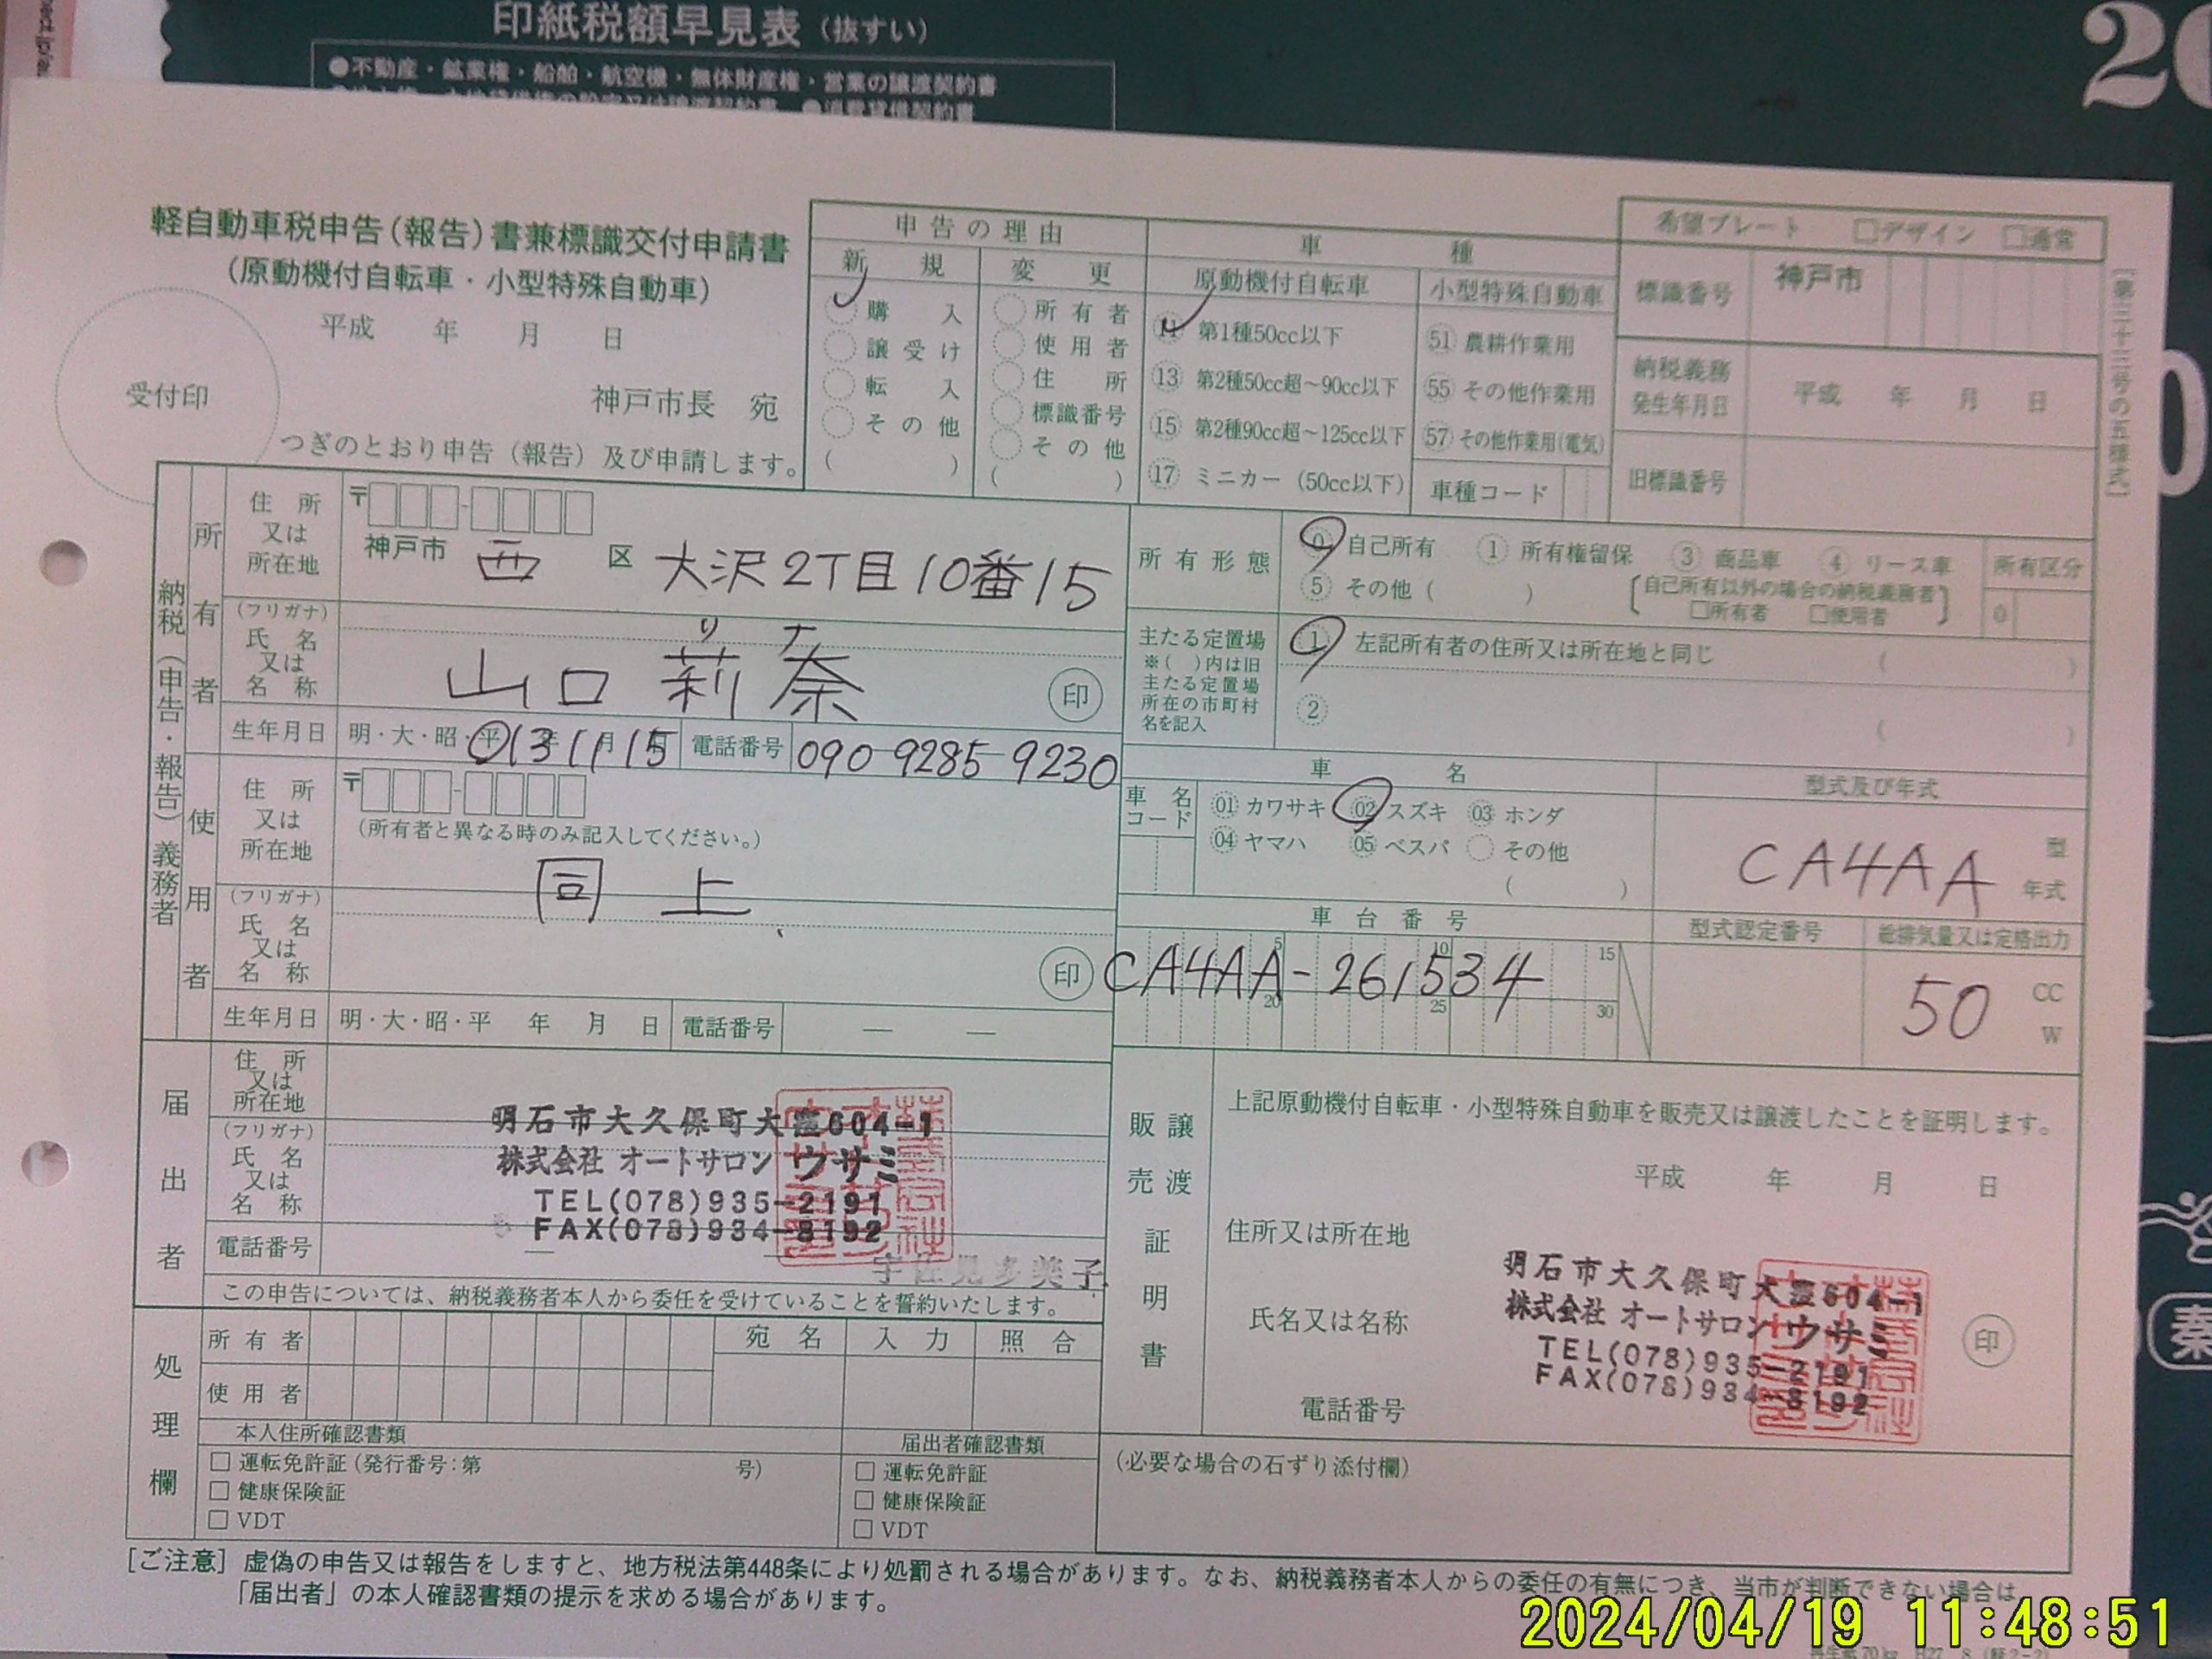 印紙税額早見表（抜すい）
●不動産・鉱業権・船舶・航空機・無体財産権・営業の譲渡契約書
軽自動車税申告（報告）書兼標識交付申請書
（原動機付自転車・小型特殊自動車）
平成 年 月 日
受付印
神戸市長 宛
つぎのとおり申告（報告）及び申請します。
申告の理由
新規
変更
購入
譲受け
転入
その他
( )
所有者
使用者
住所
標識番号
その他
( )
車種
原動機付自転車
小型特殊自動車
11 第1種50cc以下
13 第2種50cc超～90cc以下
15 第2種90cc超～125cc以下
17 ミニカー（50cc以下）
51 農耕作業用
55 その他作業用
57 その他作業用(電気)
車種コード
希望プレート □デザイン □通常
標識番号 神戸市
納税義務発生年月日 平成 年 月 日
旧標識番号
［第三十三号の五様式］
納税（申告・報告）義務者
所有者
住所又は所在地
〒 -
神戸市 西 区 大沢2丁目10番15
（フリガナ） リ ナ
氏名又は名称 山口 莉奈 印
生年月日 明・大・昭・平 13年 1月 15日 電話番号 090 9285 9230
使用者
住所又は所在地
〒 -
（所有者と異なる時のみ記入してください。）
同 上
（フリガナ）
氏名又は名称 印
生年月日 明・大・昭・平 年 月 日 電話番号 — —
所有形態
0 自己所有 1 所有権留保 3 商品車 4 リース車
5 その他（ ） ［自己所有以外の場合の納税義務者 □所有者 □使用者］
所有区分
0
主たる定置場
※（ ）内は旧主たる定置場所在の市町村名を記入
1 左記所有者の住所又は所在地と同じ （ ）
2 （ ）
車名
車名コード
01 カワサキ 02 スズキ 03 ホンダ
04 ヤマハ 05 ベスパ その他
( )
型式及び年式
CA4AA 型
年式
車台番号
5 10 15
CA4AA-261534
20 25 30
型式認定番号
総排気量又は定格出力
50 CC
W
届出者
住所又は所在地
（フリガナ）
氏名又は名称
電話番号
明石市大久保町大窪604-1
株式会社 オートサロン ウサミ
TEL(078)935-2191
FAX(078)934-8192
宇佐見多美子
この申告については、納税義務者本人から委任を受けていることを誓約いたします。
販売譲渡証明書
上記原動機付自転車・小型特殊自動車を販売又は譲渡したことを証明します。
平成 年 月 日
住所又は所在地
氏名又は名称
電話番号
明石市大久保町大窪604-1
株式会社 オートサロン ウサミ
TEL(078)935-2191
FAX(078)934-8192
印
処理欄
所有者
使用者
宛名 入力 照合
本人住所確認書類
□ 運転免許証（発行番号：第 号）
□ 健康保険証
□ VDT
届出者確認書類
□ 運転免許証
□ 健康保険証
□ VDT
（必要な場合の石ずり添付欄）
［ご注意］ 虚偽の申告又は報告をしますと、地方税法第448条により処罰される場合があります。なお、納税義務者本人からの委任の有無につき、当市が判断できない場合は
「届出者」の本人確認書類の提示を求める場合があります。
2024/04/19 11:48:51